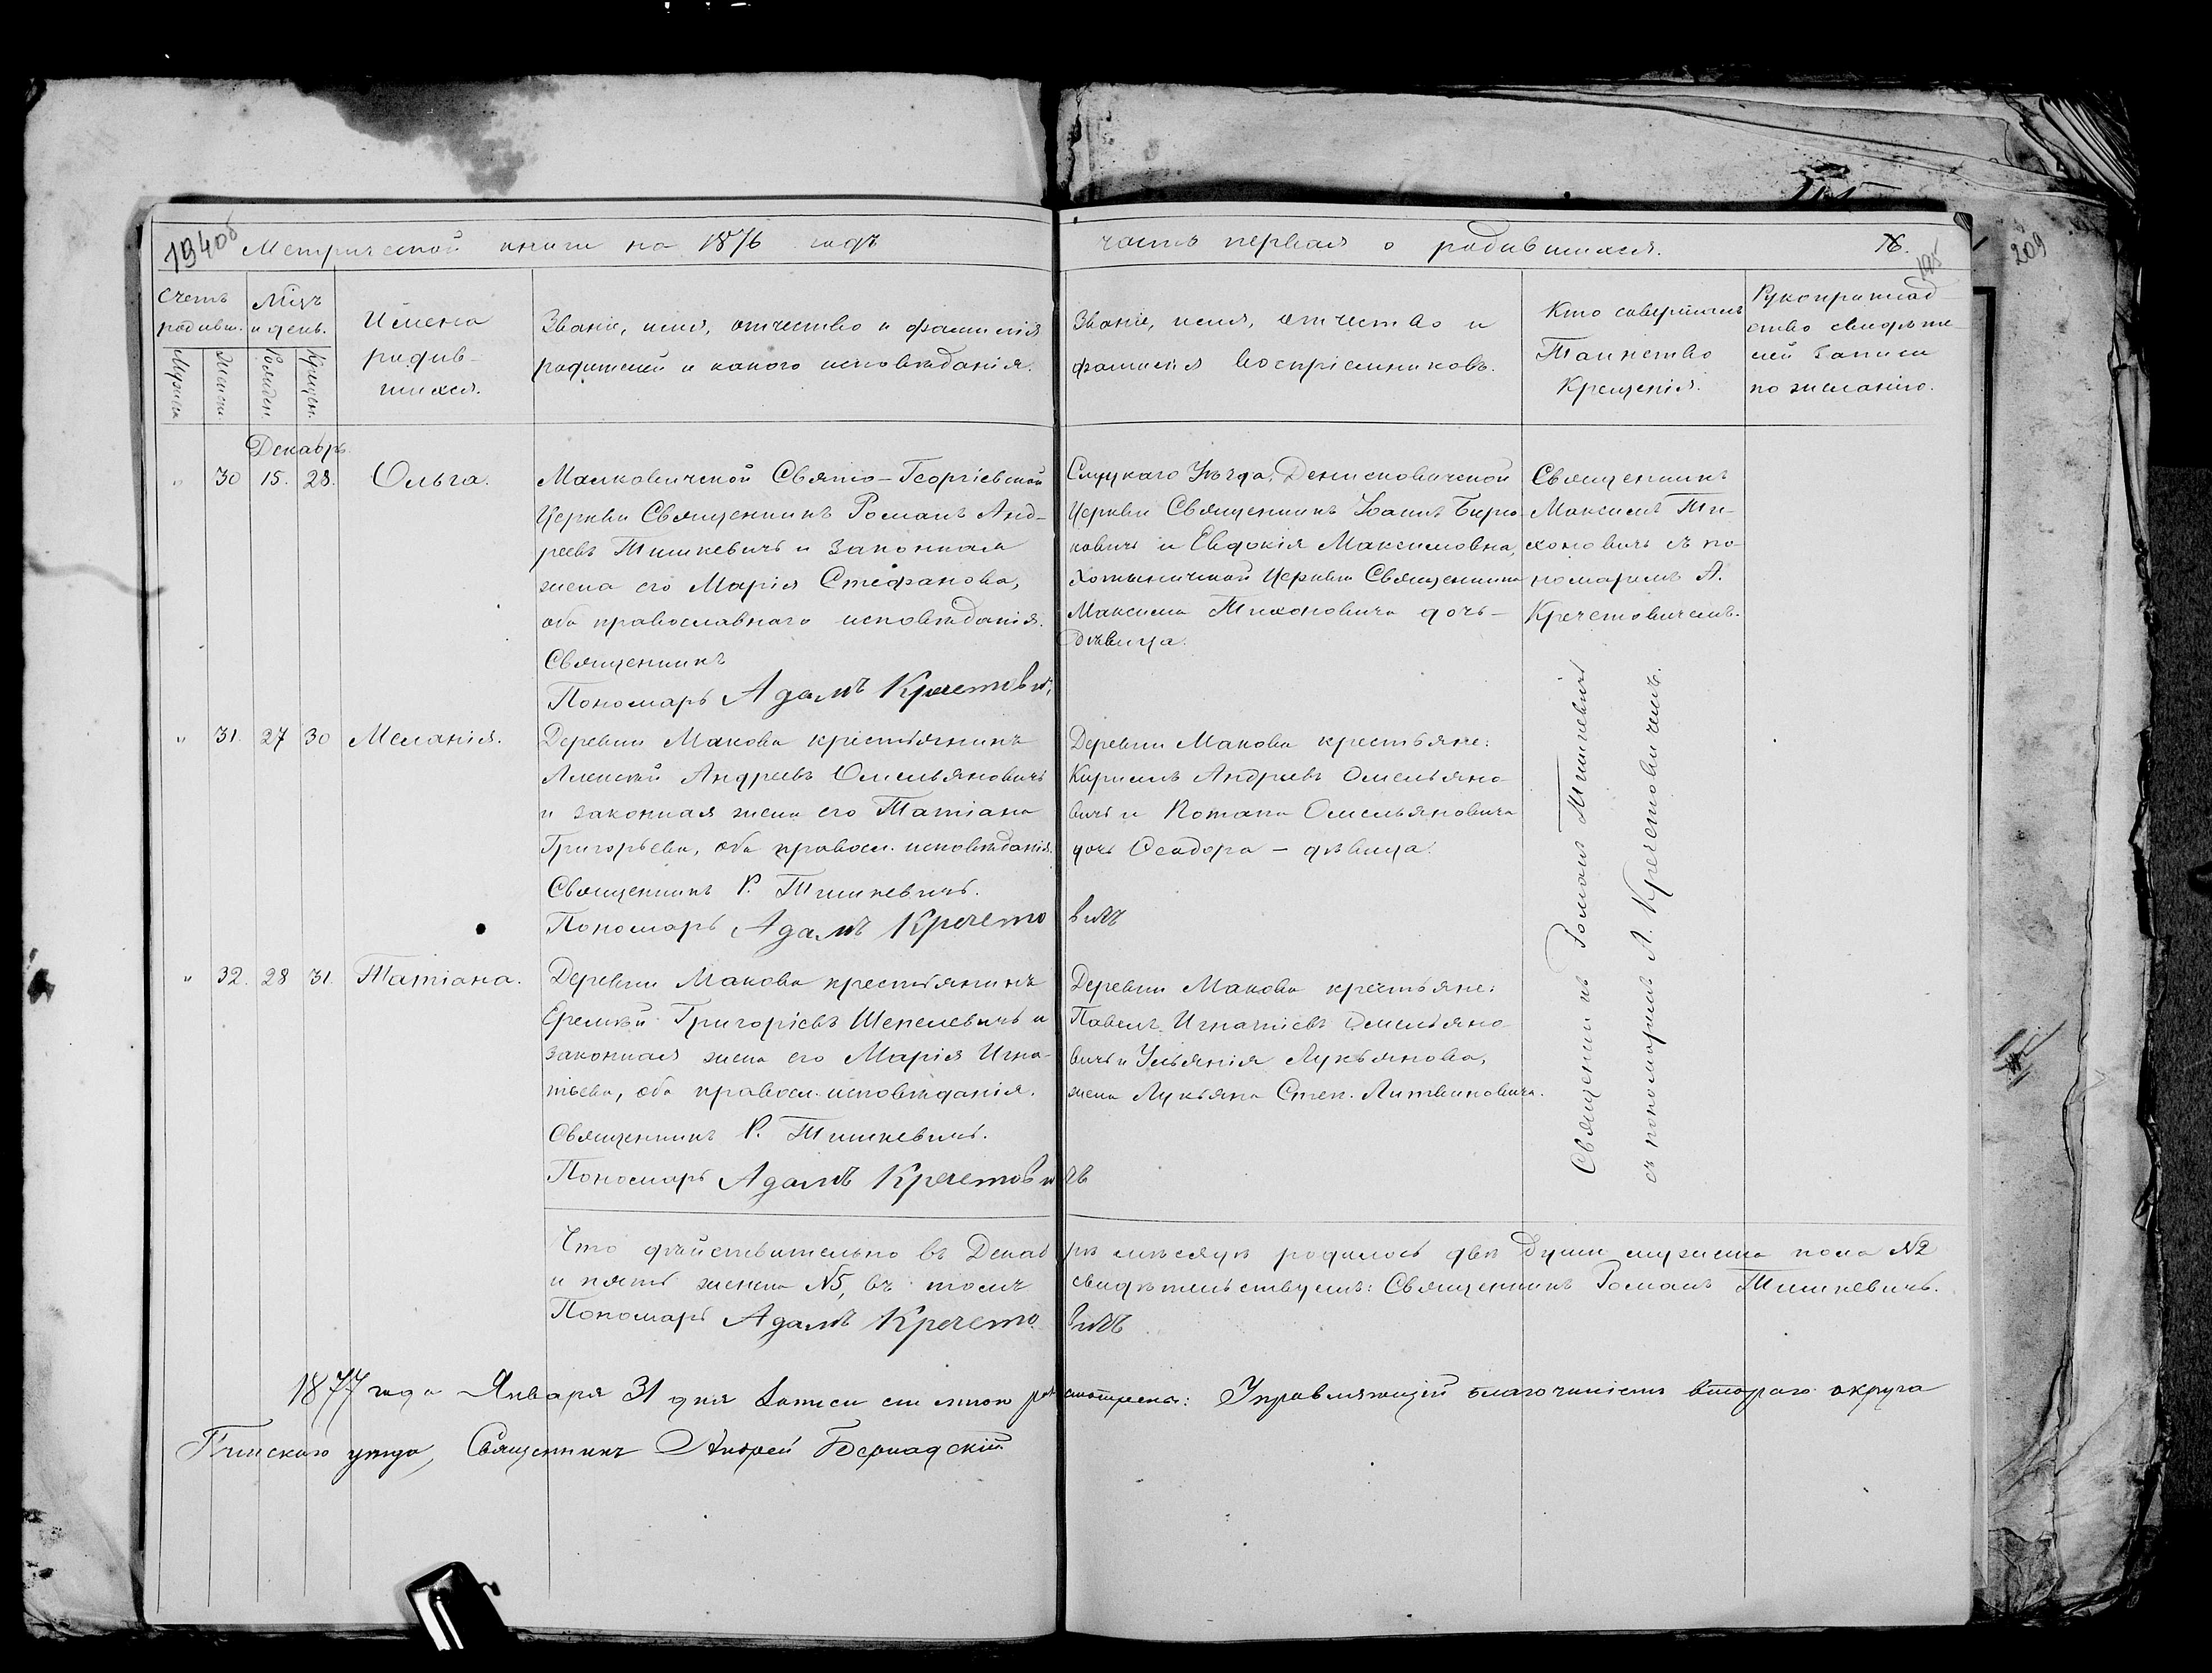 194об
Метрической книги на 1876 годъ
часть первая о родившихся.
195
209
Счетъ родивш.
Мцъ и день.
Мужска
Женск.
Рожден.
Крещен.
Имена
родив-
шихся.
Званіе, имя, отчество и фамилія
родителей и какого исповѣданія.
Званіе, имя, отчество и
фамилія воспріемниковъ.
Кто совершилъ
Таинство
Крещенія.
Рукоприклад-
ство свидѣте-
лей записи
по желанію.
Декабрь
" 30 15. 28. Ольга.
Малковичской Свято-Георгіевской
Церкви Священникъ Романъ Анд-
реевъ Тишкевичъ и законная
жена его Марія Стефанова,
оба православнаго исповѣданія.
Священникъ
Пономарь Адамъ Кречетови
Слуцкаго Уѣзда, Денисковичской
Церкви Священникъ Іоаннъ Бирю-
ковичъ и Евдокія Максимовна,
Хотыничской Церкви Священника
Максима Тихоновича дочь-
дѣвица.
Священникъ
Максимъ Ти-
хоновичъ съ по-
номаремъ А.
Кречетовичемъ.
" 31. 27 30 Меланія.
Деревни Макова крестьянинъ
Алексѣй Андреевъ Омельяновичъ
и законная жена его Татіана
Григорьева, оба правосл. исповѣданія.
Священникъ Р. Тишкевичъ.
Пономарь Адамъ Кречетовичъ
Деревни Макова крестьяне:
Кириллъ Андреевъ Омельяно-
вичъ и Потапа Омельяновича
дочь Феодора - дѣвица.
" 32. 28 31. Татіана.
Деревни Макова крестьянинъ
Еремѣй Григоріевъ Шепелевичъ и
законная жена его Марія Игна-
тьева, оба правосл. исповѣданія.
Священникъ Р. Тишкевичъ.
Пономарь Адамъ Кречетовичъ
Деревни Макова крестьяне:
Павелъ Игнатіевъ Омельяно-
вичъ и Ульянія Лукьянова,
жена Лукьяна Степ. Литвиновича.
Священникъ Романъ Тишкевичъ
съ пономаремъ А. Кречетовичемъ.
Что дѣйствительно въ Декабрѣ мѣсяцѣ родилось двѣ души мужеска пола №2
и пять женска №5, въ томъ свидѣтельствуемъ: Священникъ Романъ Тишкевичъ.
Пономарь Адамъ Кречетовичъ
1877 года Января 31 дня Записи сіи мною разсмотрены: Управляющій благочиніемъ втораго округа
Пинскаго уѣзда, Священникъ Андрей Бернадскій